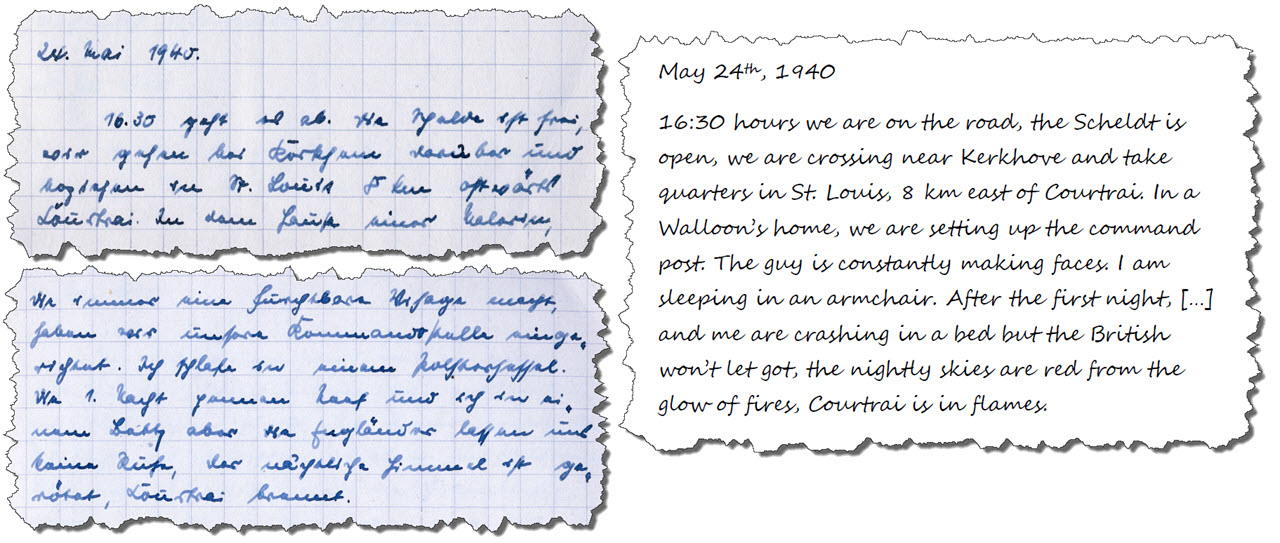 24. Mai 1940.
16.30 geht es ab. Die Schelde ist frei,
wir gehen bei Kerkhove darüber und
beziehen in St. Louis 8 km ostwärts
Courtrai. In dem Hause einer
die immer eine furchtbare Visage macht,
haben wir unsere Kommandostelle einge-
richtet. Ich schlafe in einem Polstersessel.
Die 1. Nacht pennen und ich in ei-
nem Bett, aber die Engländer lassen uns
keine Ruhe, der nächtliche Himmel ist ge-
rötet, Courtrai brennt.
May 24th, 1940
16:30 hours we are on the road, the Scheldt is
open, we are crossing near Kerkhove and take
quarters in St. Louis, 8 km east of Courtrai. In a
Walloon's home, we are setting up the command
post. The guy is constantly making faces. I am
sleeping in an armchair. After the first night, [...]
and me are crashing in a bed but the British
won't let got, the nightly skies are red from the
glow of fires, Courtrai is in flames.